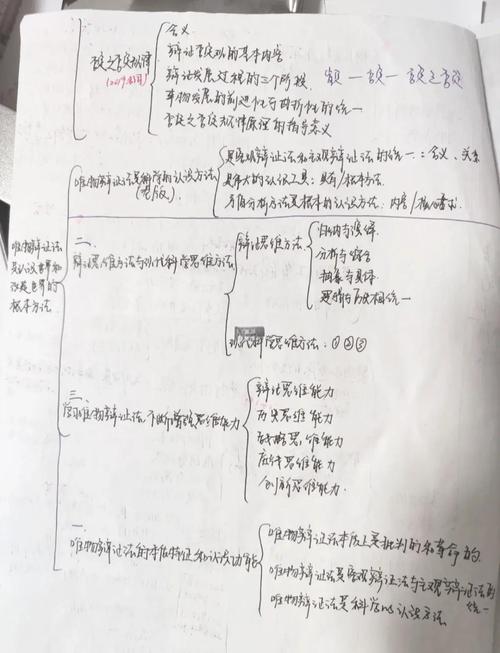 含义
辩证否定观的基本内容
否定之否定规律
辩证发展过程的三个阶段
肯定一否定一否定之否定
事物发展的前进性与曲折性的统一
否定之否定规律原理的指导意义
是客观辩证法和主观辩证法的统一:含义、关系
唯物辩证法是科学的认识方法
是伟大的认识工具:具有/根本方法
矛盾分析方法是根本的认识方法:内容/核心要求
唯物辩证法是认识世界和改造世界的根本方法
二、
辩证思维方法与现代科学思维方法
辩证思维方法
归纳与演绎
分析与综合
抽象与具体
逻辑与历史相统一
现代科学思维方法:①②③
三、
学习唯物辩证法,不断增强思维能力
辩证思维能力
历史思维能力
战略思维能力
底线思维能力
创新思维能力
一、
唯物辩证法的本质特征和认识功能
唯物辩证法本质上是批判的和革命的
唯物辩证法是客观辩证法与主观辩证法的统一
唯物辩证法是科学的认识方法